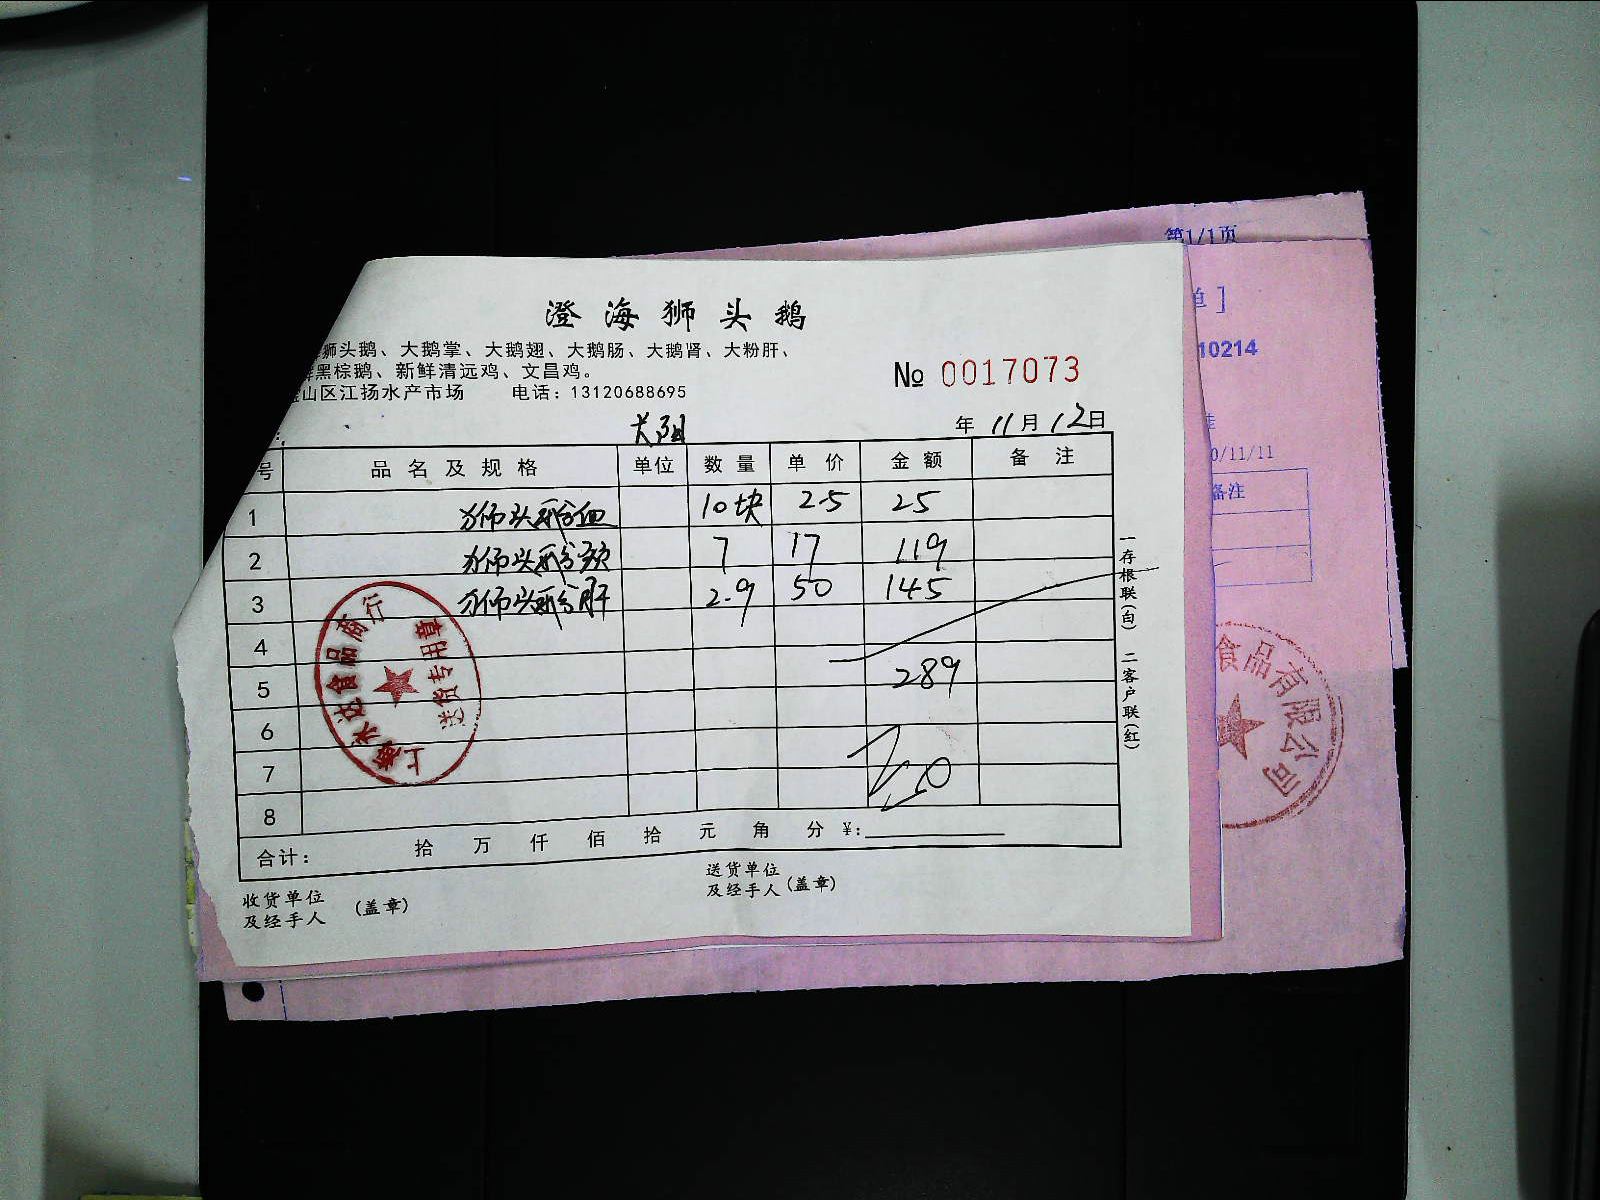 第1/1页
单 ]
10214
0/11/11
备注
澄海狮头鹅
狮头鹅、大鹅掌、大鹅翅、大鹅肠、大鹅肾、大粉肝、
鲜黑棕鹅、新鲜清远鸡、文昌鸡。
山区江扬水产市场 电话：13120688695
№ 0017073
年 11月 12日
号 品名及规格 单位 数量 单价 金额 备注
1 狮头鹅血 10块 2.5 25
2 狮头鹅颈 7 17 119
3 狮头鹅肝 2.9 50 145
4
5 289
6
7
8
合计： 拾 万 仟 佰 拾 元 角 分 ￥：
收货单位
及经手人 (盖章)
送货单位
及经手人 (盖章)
一存根联(白) 二客户联(红)
上海永达食品商行
送货专用章
食品有限公司